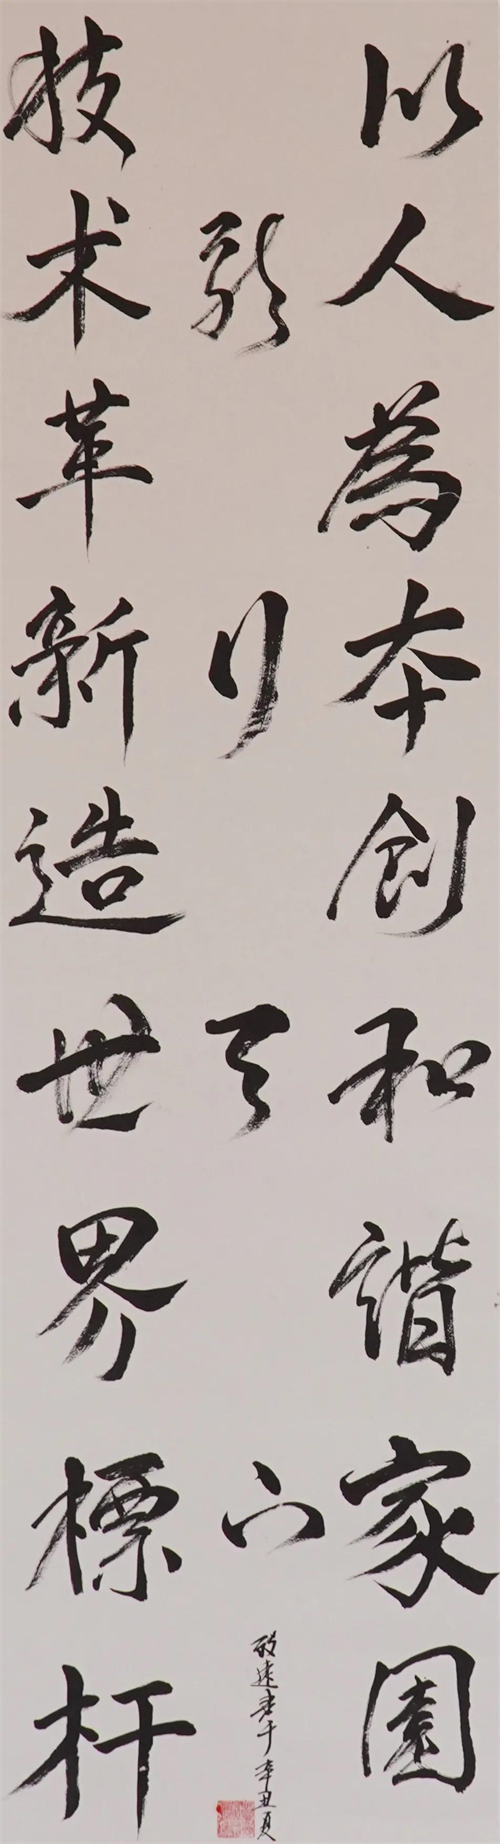 以人為本創和諧家園
龍行天下
致遠書于辛丑夏
技术革新造世界標杆